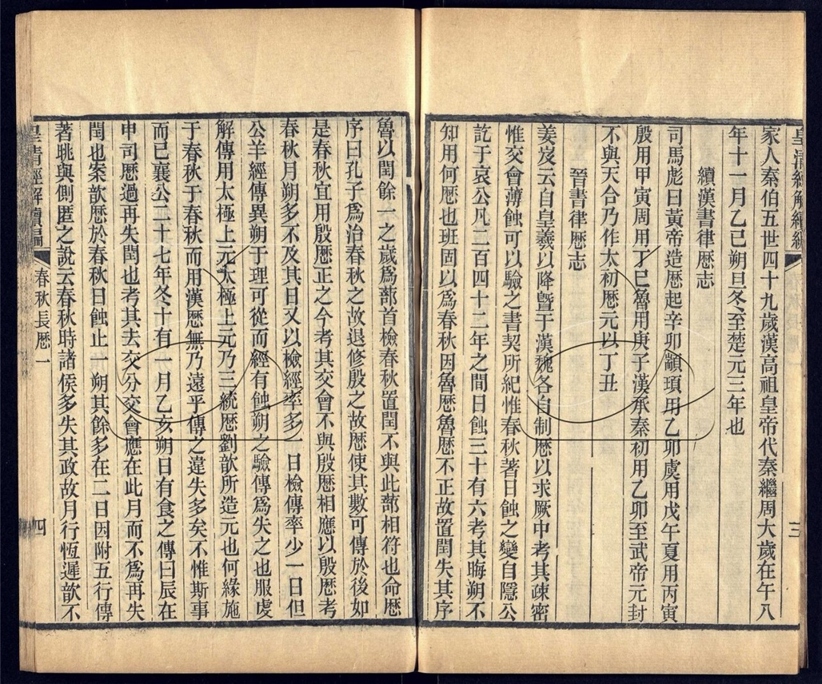 皇清經解續編
家人秦伯五世四十九歲漢高祖皇帝代秦繼周大歲在午八
年十一月乙巳朔旦冬至楚元三年也
續漢書律厯志
司馬彪曰黃帝造厯起辛卯顓頊用乙卯虞用戊午夏用丙寅
殷用甲寅周用丁巳魯用庚子漢承秦初用乙卯至武帝元封
不與天合乃作太初厯元以丁丑
晉書律厯志
姜岌云自皇羲以降曁于漢魏各自制厯以求厥中考其疎密
惟交會薄蝕可以驗之書契所紀惟春秋著日蝕之變自隱公
訖于哀公凡二百四十二年之間日蝕三十有六考其晦朔不
知用何厯也班固以爲春秋因魯厯魯厯不正故置閏失其序
三
魯以閏餘一之歲爲蔀首檢春秋置閏不與此蔀相符也命厯
序曰孔子爲治春秋之故退修殷之故厯使其數可傳於後如
是春秋宜用殷厯正之今考其交會不與殷厯相應以殷厯考
春秋月朔多不及其日又以檢經率多一日檢傳率少一日但
公羊經傳異朔于理可從而經有蝕朔之驗傳爲失之也服虔
解傳用太極上元太極上元乃三統厯劉歆所造元也何緣施
于春秋于春秋而用漢厯無乃遠乎傳之違失多矣不惟斯事
而已襄公二十七年冬十有一月乙亥朔日有食之傳曰辰在
申司厯過再失閏也考其去交分交會應在此月而不爲再失
閏也案歆厯於春秋日蝕止一朔其餘多在二日因附五行傳
著朓與側匿之說云春秋時諸侯多失其政故月行恆遲歆不
皇清經解續編
春秋長厯一
四